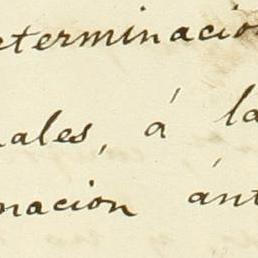 eterminacio
nales, á la
nación ánt